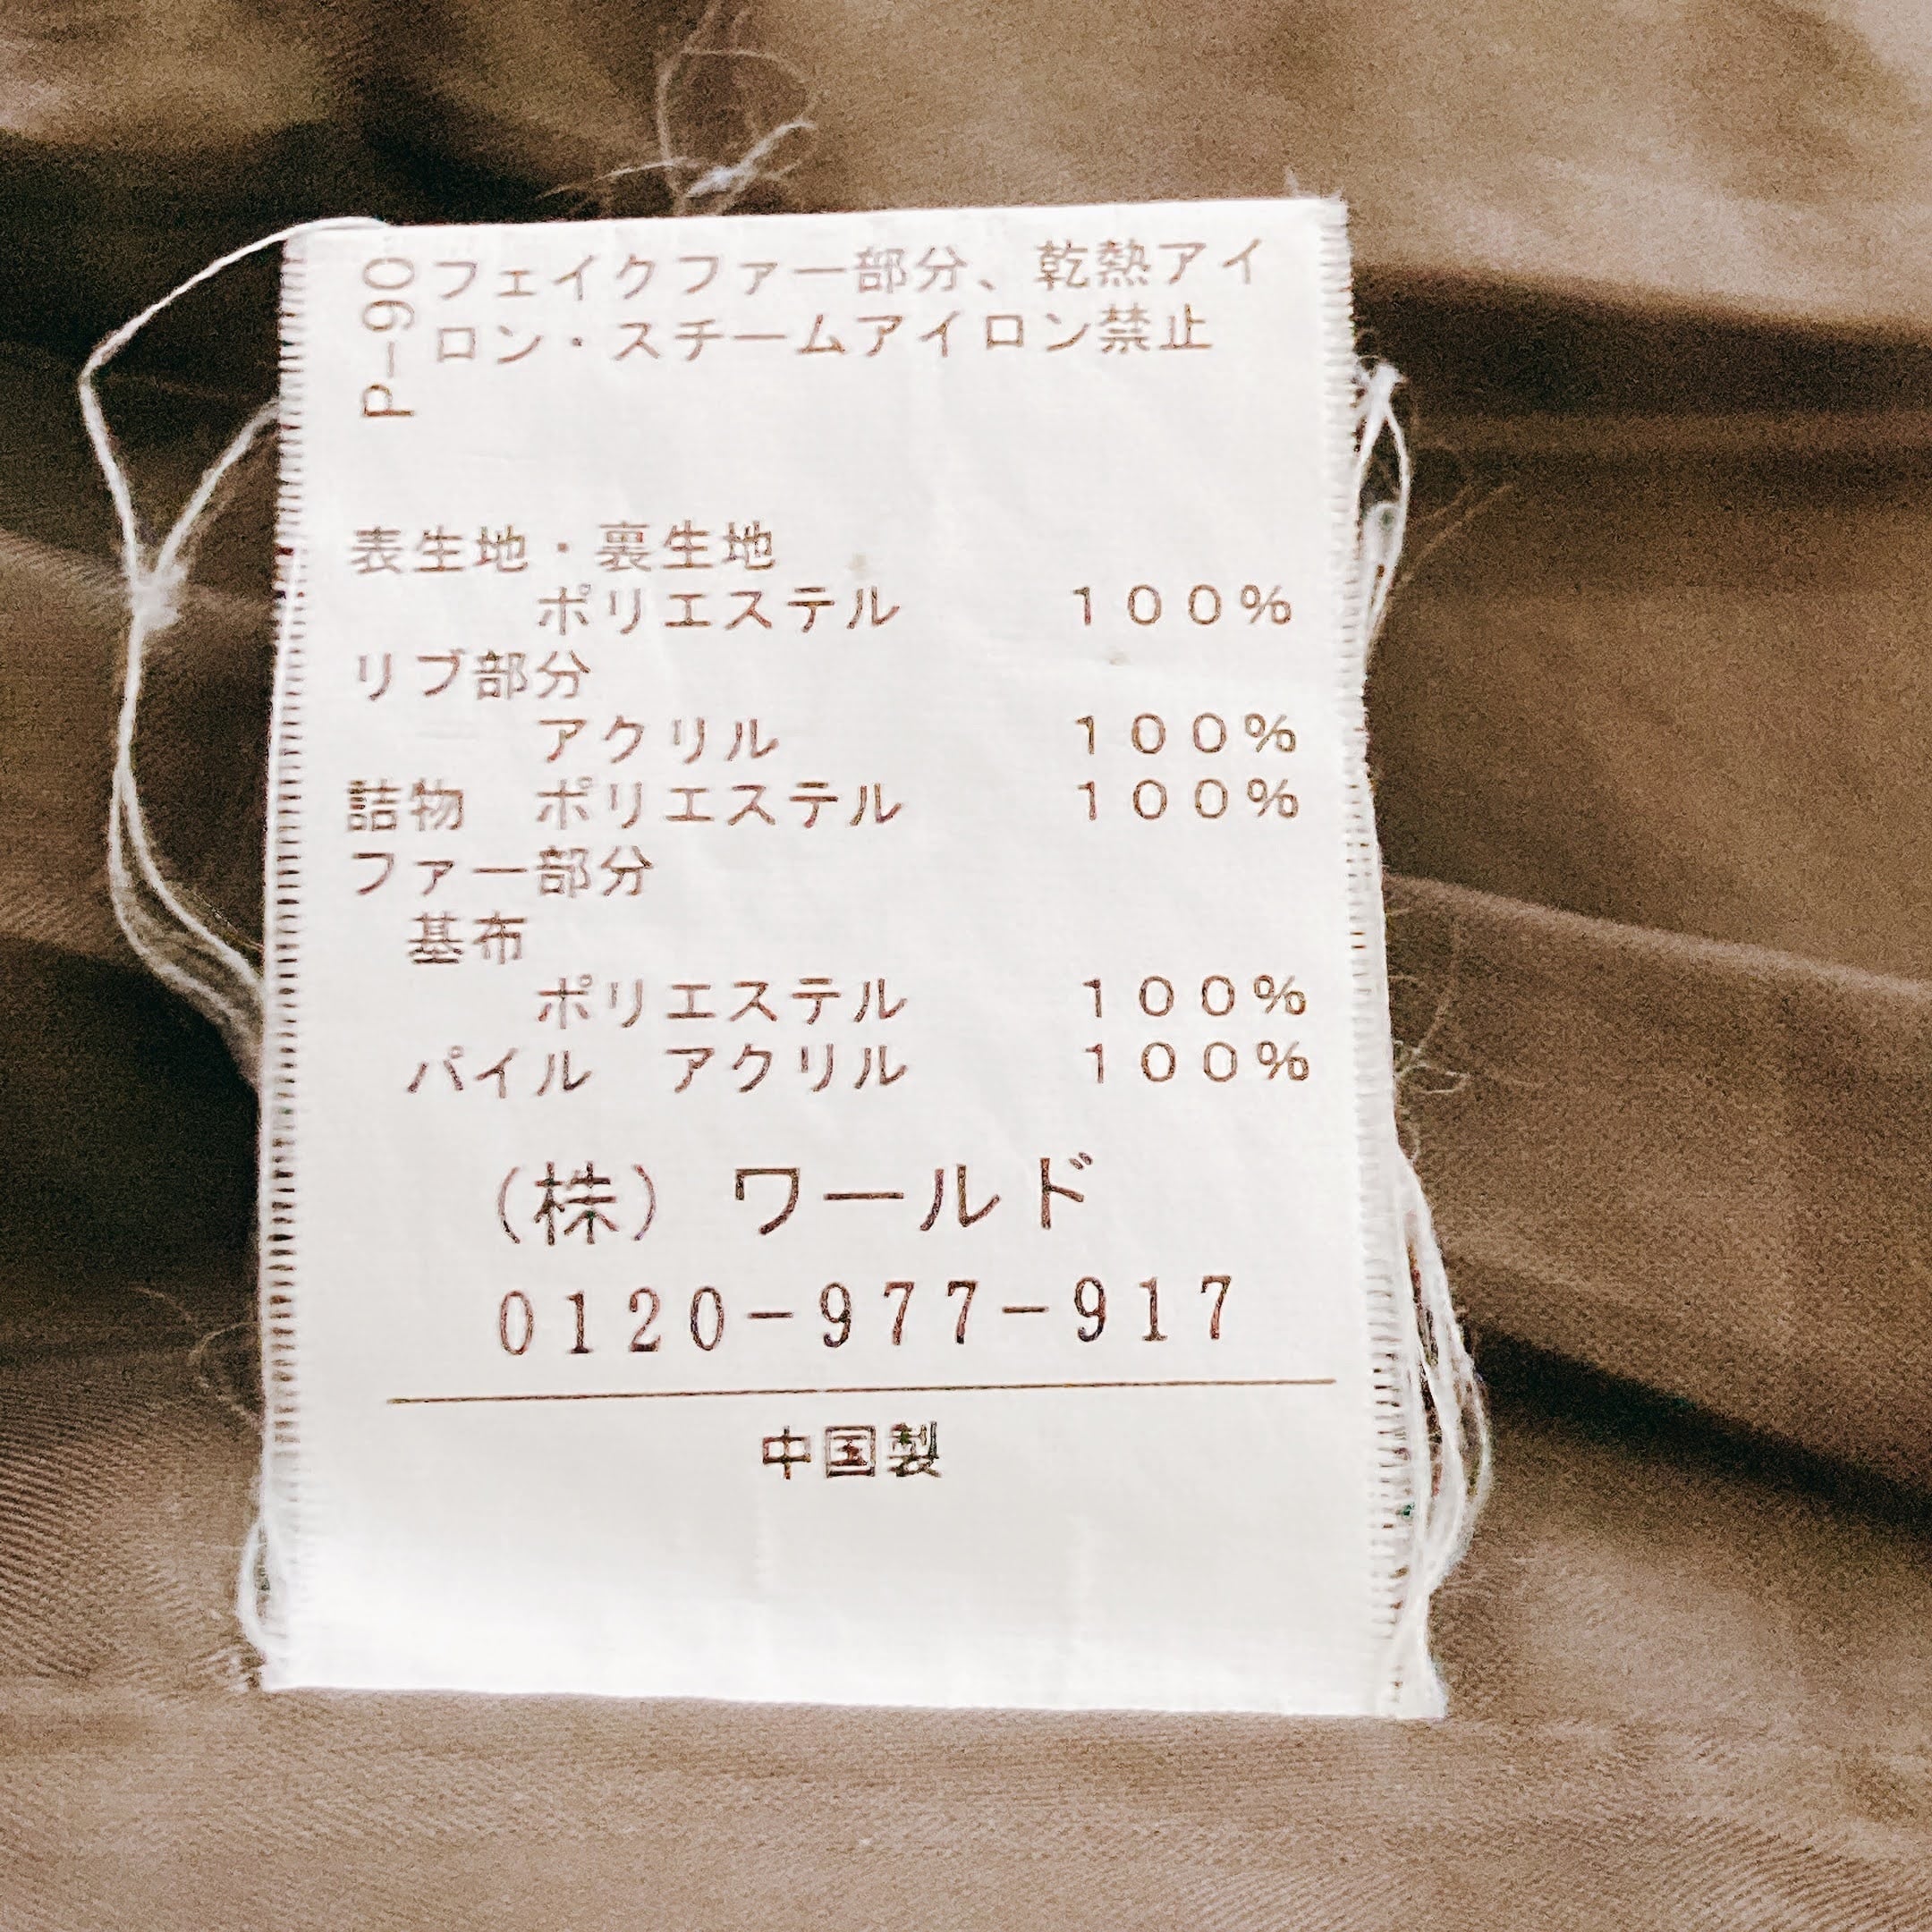 P-90
フェイクファー部分、乾熱アイ
ロン・スチームアイロン禁止
表生地・裏生地
ポリエステル　１００％
リブ部分
アクリル　１００％
詰物　ポリエステル　１００％
ファー部分
基布
ポリエステル　１００％
パイル　アクリル　１００％
（株）ワールド
0120-977-917
中国製